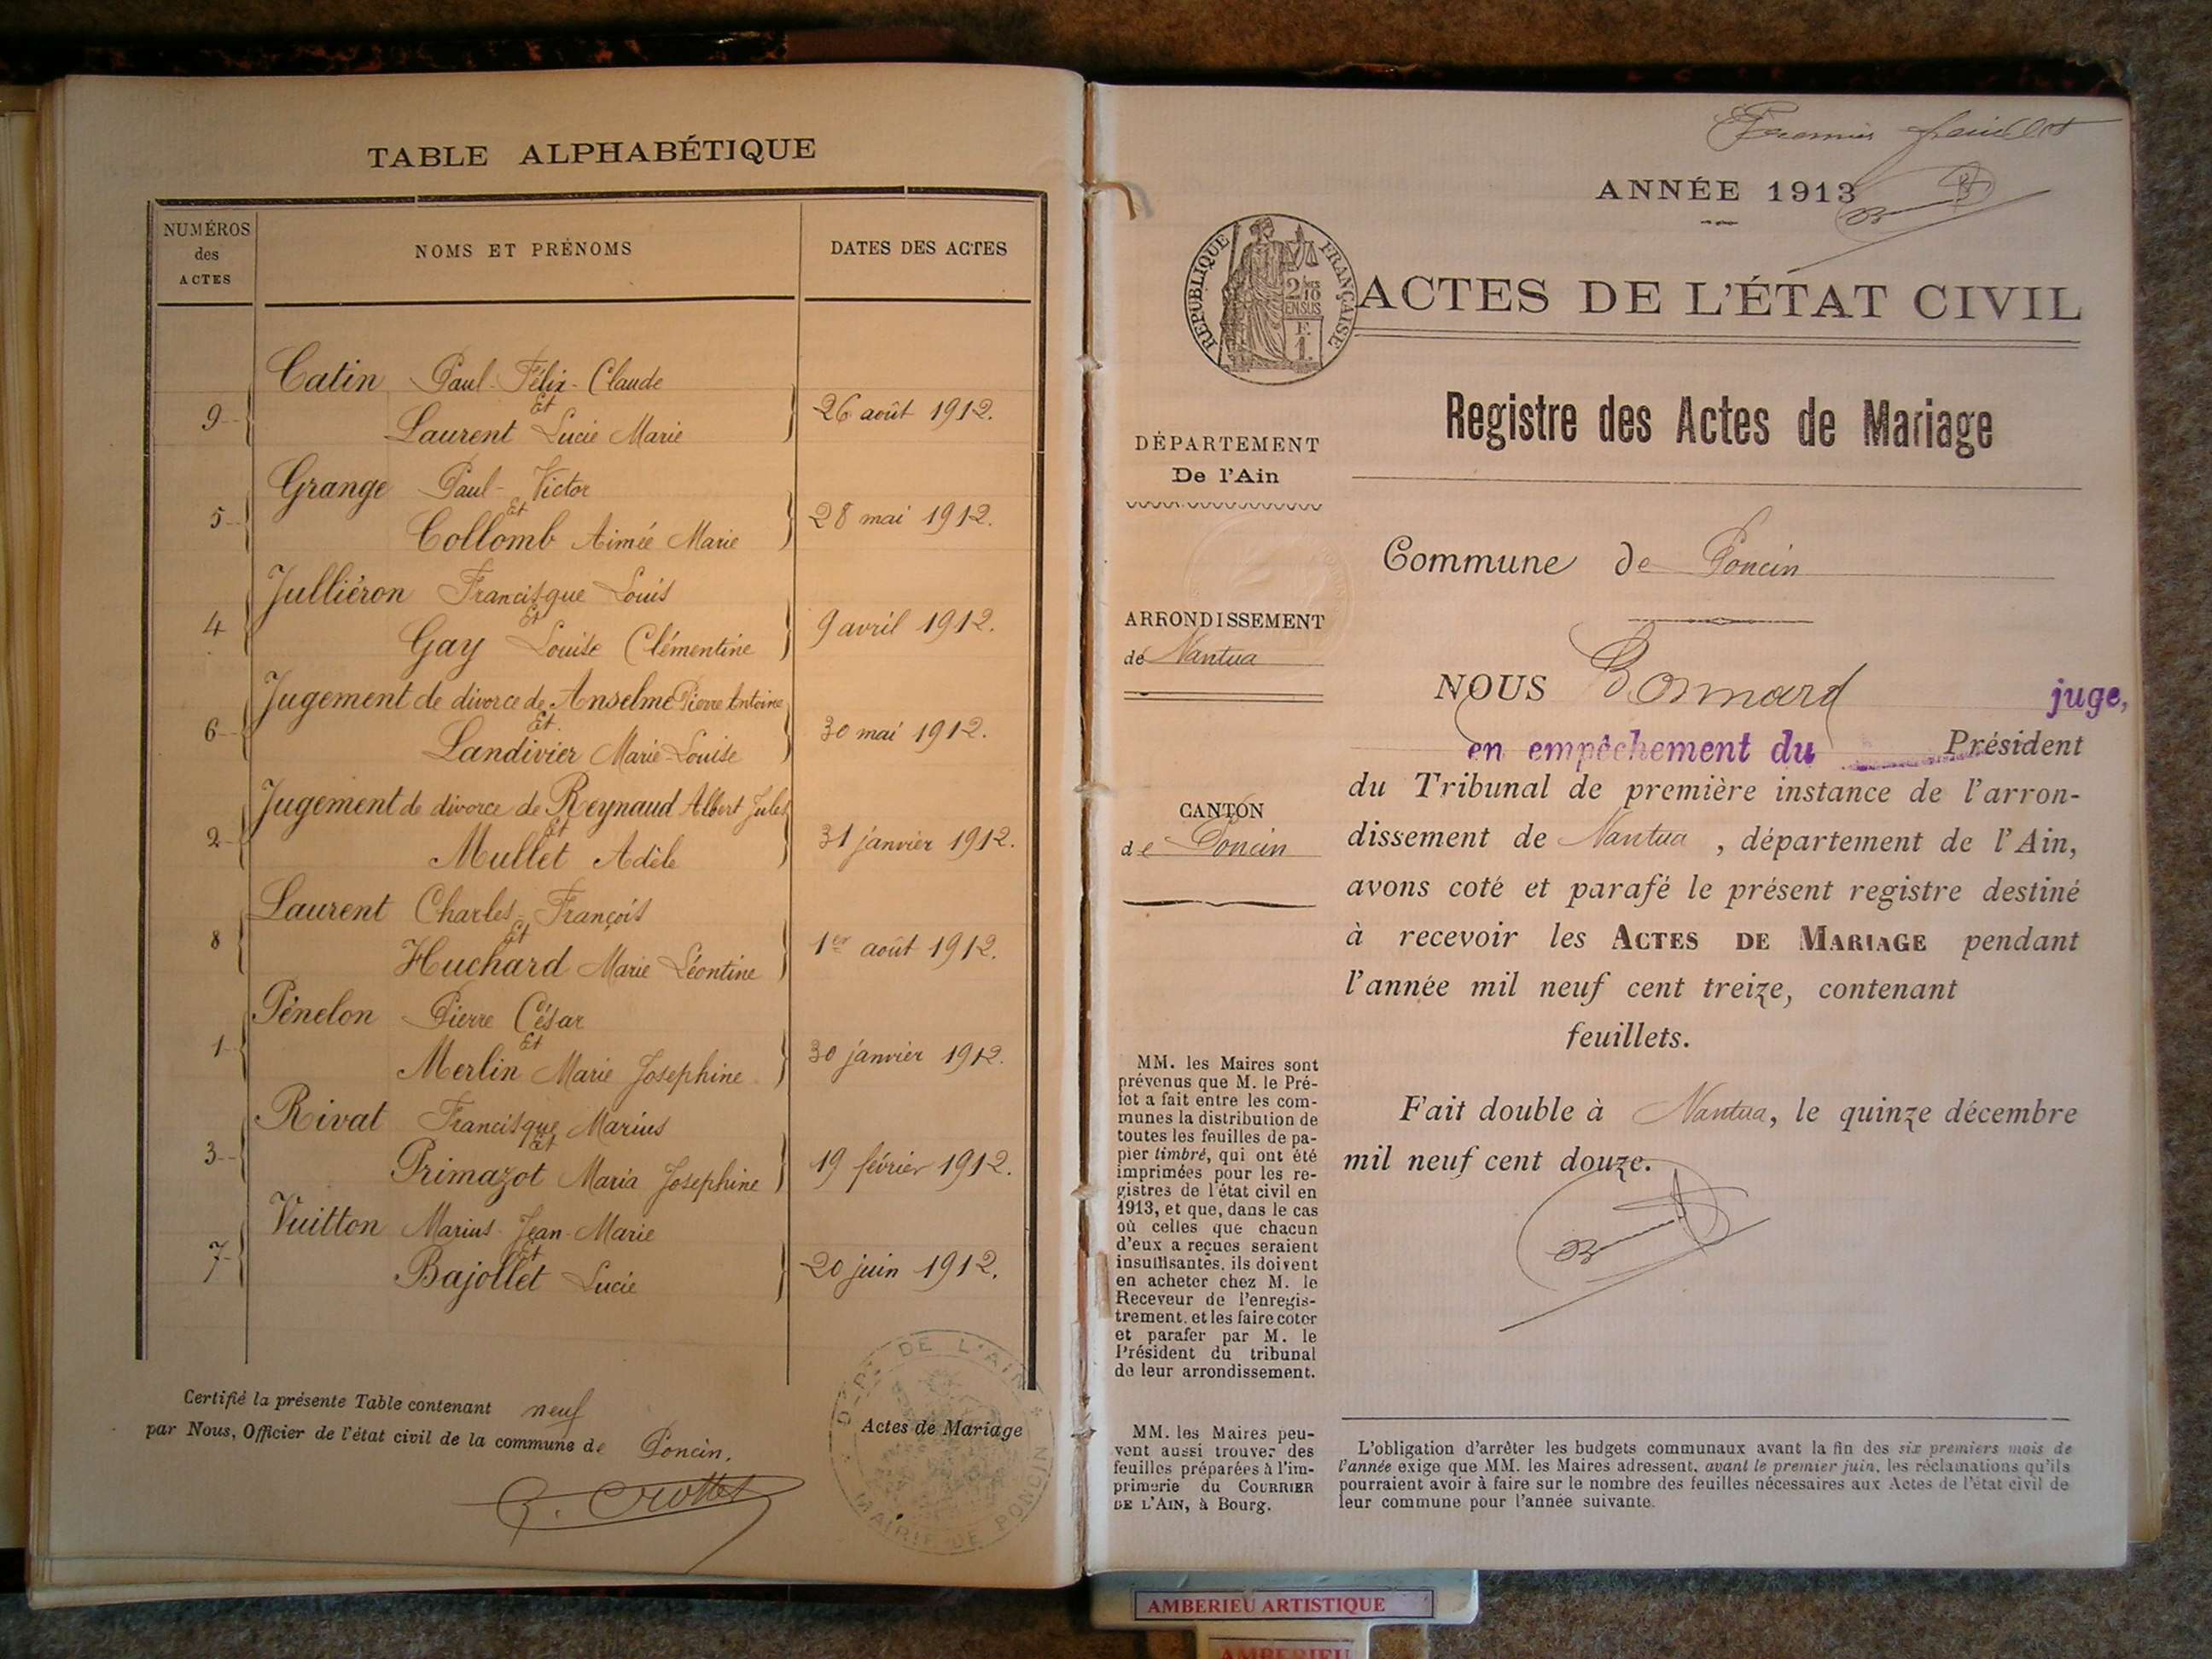 TABLE ALPHABÉTIQUE
NUMÉROS
des
ACTES
NOMS ET PRÉNOMS
DATES DES ACTES
Catin Paul-Félix-Claude
Et
9
Laurent Lucie Marie
26 août 1912.
Grange Paul-Victor
Et
5
Collomb Aimée Marie
28 mai 1912.
Julliéron Francisque Louis
Et
4
Gay Louise Clémentine
9 avril 1912.
Jugement de divorce de Anselme Pierre Antoine
Et
6
Landivier Marie-Louise
30 mai 1912.
Jugement de divorce de Reynaud Albert Jules
Et
2
Mullet Adèle
31 janvier 1912.
Laurent Charles-François
Et
8
Huchard Marie Léontine
1er août 1912.
Pénelon Pierre César
Et
1
Merlin Marie Josephine
30 janvier 1912.
Rivat Francisque Marius
Et
3
Primazot Maria Josephine
19 février 1912.
Vuitton Marius-Jean-Marie
Et
7
Bajollet Lucie
20 juin 1912.
Certifié la présente Table contenant neuf Actes de Mariage
par Nous, Officier de l'état civil de la commune de Poncin.
DE L'AIN
MAIRIE DE PONCIN
Premier feuillet
ANNÉE 1913
RÉPUBLIQUE FRANÇAISE
2/10
EN SUS
F.
1.
ACTES DE L'ÉTAT CIVIL
Registre des Actes de Mariage
DÉPARTEMENT
De l'Ain
Commune de Poncin
ARRONDISSEMENT
de Nantua
CANTON
de Poncin
NOUS Bonnard juge,
en empêchement du Président
du Tribunal de première instance de l'arron-
dissement de Nantua, département de l'Ain,
avons coté et parafé le présent registre destiné
à recevoir les ACTES DE MARIAGE pendant
l'année mil neuf cent treize, contenant
feuillets.
Fait double à Nantua, le quinze décembre
mil neuf cent douze.
MM. les Maires sont
prévenus que M. le Pré-
fet a fait entre les com-
munes la distribution de
toutes les feuilles de pa-
pier timbré, qui ont été
imprimées pour les re-
gistres de l'état civil en
1913, et que, dans le cas
où celles que chacun
d'eux a reçues seraient
insuffisantes, ils doivent
en acheter chez M. le
Receveur de l'enregis-
trement, et les faire coter
et parafer par M. le
Président du tribunal
de leur arrondissement.
MM. les Maires peu-
vent aussi trouver des
feuilles préparées à l'im-
primerie du COURRIER
DE L'AIN, à Bourg.
L'obligation d'arrêter les budgets communaux avant la fin des six premiers mois de
l'année exige que MM. les Maires adressent, avant le premier juin, les réclamations qu'ils
pourraient avoir à faire sur le nombre des feuilles nécessaires aux Actes de l'état civil de
leur commune pour l'année suivante.
AMBERIEU ARTISTIQUE
AMBERIEU